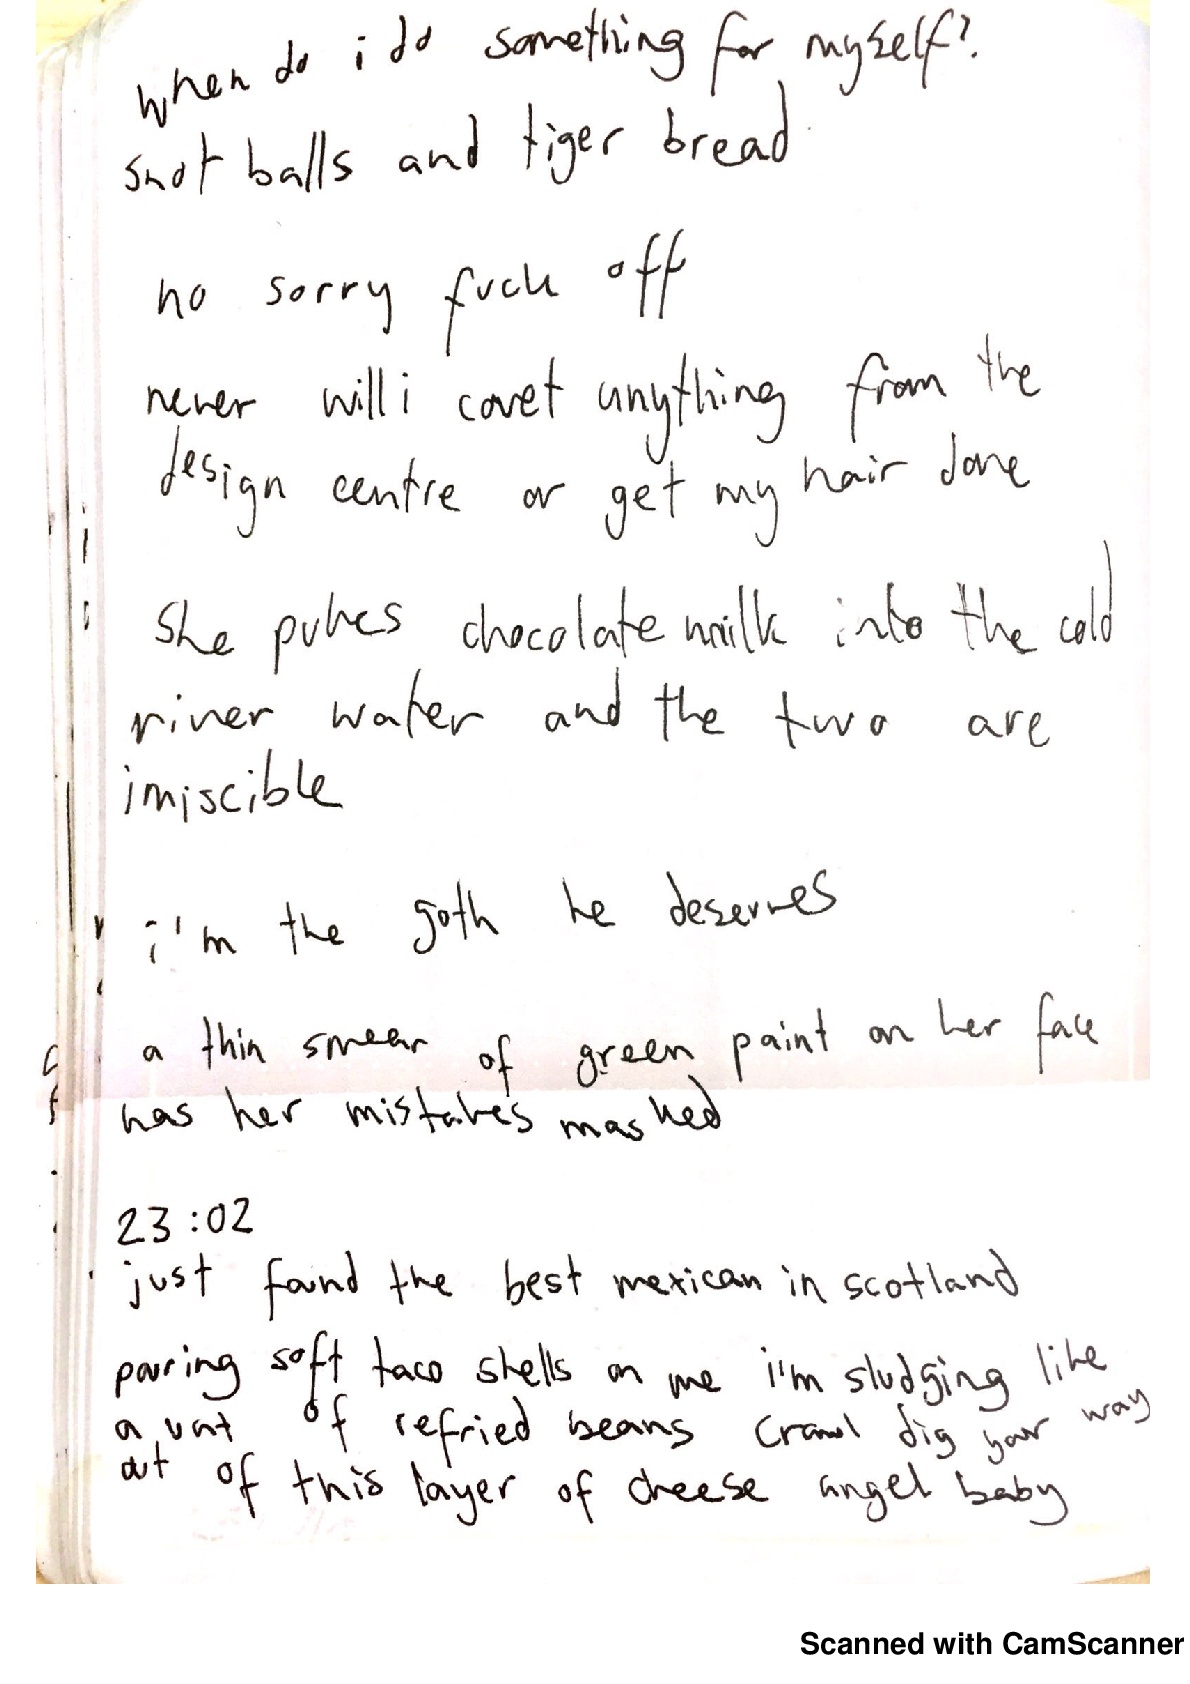 when do i do something for myself?
snot balls and tiger bread
no sorry fuck off
never will i covet anything from the
design centre or get my hair done
She pukes chocolate milk into the cold
river water and the two are
imiscible
i'm the goth he deserves
a thin smear of green paint on her face
has her mistakes masked
23:02
just found the best mexican in scotland
pouring soft taco shells on me i'm sludging like
a vat of refried beans crawl dig your way
out of this layer of cheese angel baby
Scanned with CamScanner